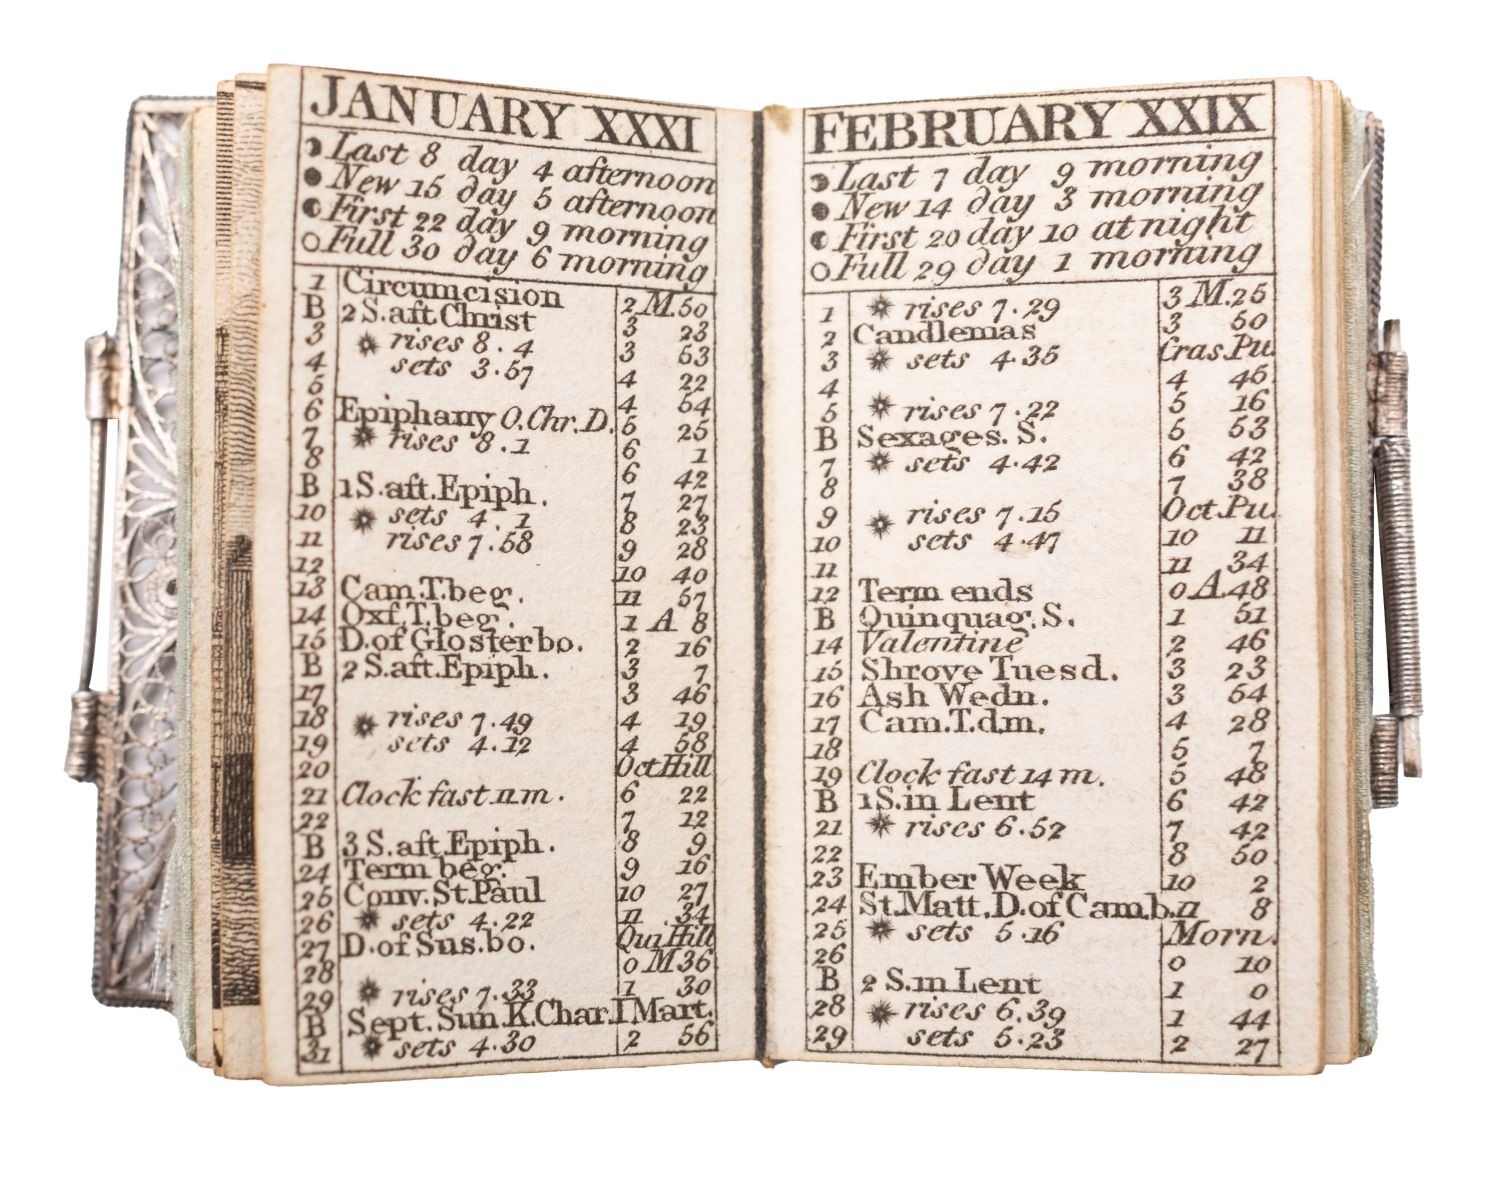 JANUARY XXXI
Last 8 day 4 afternoon
New 15 day 5 afternoon
First 22 day 9 morning
Full 30 day 6 morning
1 Circumcision 2 M.50
B 2 S.aft.Christ 3 23
3 rises 8.4 3 53
4 sets 3.57 4 22
5 4 54
6 Epiphany O.Chr.D. 5 25
7 rises 8.1 6 1
8 6 42
B 1 S.aft.Epiph. 7 27
10 sets 4.1 8 23
11 rises 7.58 9 28
12 10 40
13 Cam.T.beg. 11 57
14 Oxf.T.beg. 1 A 8
15 D.of Gloster bo. 2 16
B 2 S.aft.Epiph. 3 7
17 3 46
18 rises 7.49 4 19
19 sets 4.12 4 58
20 Oct Hill
21 Clock fast 11 m. 6 22
22 7 12
B 3 S.aft.Epiph. 8 9
24 Term beg. 9 16
25 Conv.St.Paul 10 27
26 sets 4.22 11 34
27 D.of Sus.bo. Qui Hill
28 0 M 36
29 rises 7.33 1 30
B Sept.Sun.K.Char.I Mart.
31 sets 4.30 2 56
FEBRUARY XXIX
Last 7 day 9 morning
New 14 day 3 morning
First 20 day 10 at night
Full 29 day 1 morning
1 rises 7.29 3 M.25
2 Candlemas 3 50
3 sets 4.35 Cras.Pu.
4 4 46
5 rises 7.22 5 16
B Sexages. S. 5 53
7 sets 4.42 6 42
8 7 38
9 rises 7.15 Oct.Pu.
10 sets 4.47 10 11
11 11 34
12 Term ends 0 A.48
B Quinquag. S. 1 51
14 Valentine 2 46
15 Shrove Tuesd. 3 23
16 Ash Wedn. 3 54
17 Cam.T.d.m. 4 28
18 5 7
19 Clock fast 14 m. 5 48
B 1 S.in Lent 6 42
21 rises 6.52 7 42
22 8 50
23 Ember Week 10 2
24 St.Matt.D.of Cam.b. 11 8
25 sets 5.16 Morn.
26 0 10
B 2 S.in Lent 1 0
28 rises 6.39 1 44
29 sets 5.23 2 27